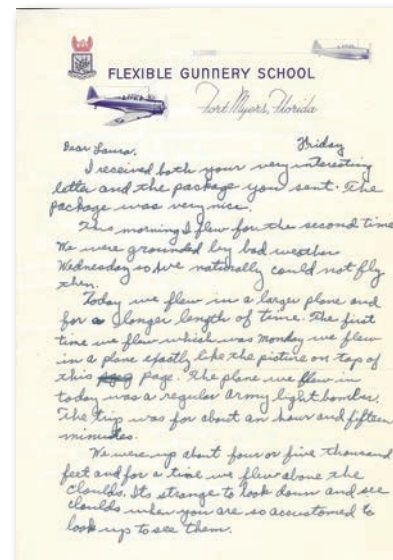 FLEXIBLE GUNNERY SCHOOL
Fort Myers, Florida
Friday
Dear Laura,
I received both your very interesting
letter and the package you sent. The
package was very nice.
This morning I flew for the second time
We were grounded by bad weather
Wednesday so we naturally could not fly
then.
Today we flew in a larger plane and
for a longer length of time. The first
time we flew which was Monday we flew
in a plane exactly like the picture on top of
this page. The plane we flew in
today was a regular army light bomber.
The trip was for about an hour and fifteen
minutes.
We were up about four or five thousand
feet and for a time we flew above the
cloulds. Its strange to look down and see
cloulds when you are so accustomed to
look up to see them.